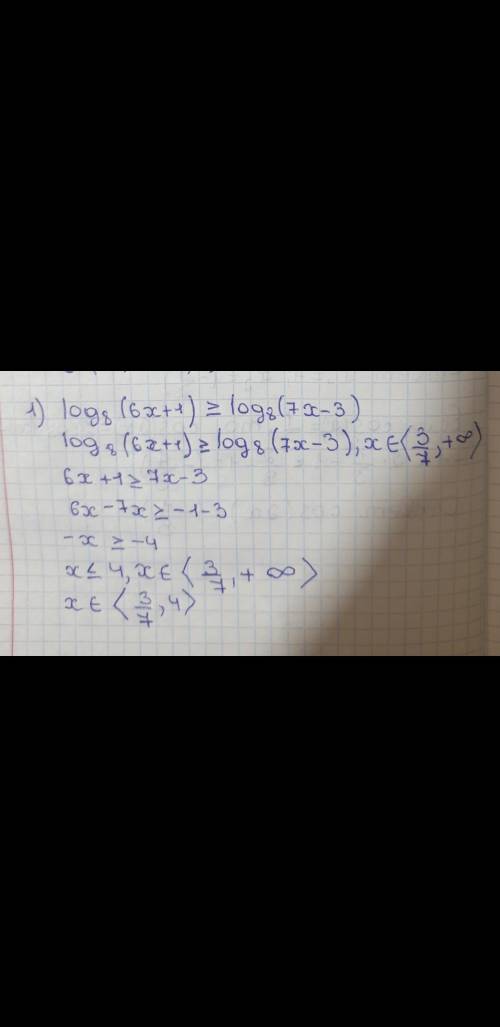 1) log₈(6x+1) ≥ log₈(7x-3)
log₈(6x+1) ≥ log₈(7x-3), x∈⟨3/7, +∞⟩
6x+1 ≥ 7x-3
6x-7x ≥ -1-3
-x ≥ -4
x ≤ 4, x∈⟨3/7, +∞⟩
x∈⟨3/7, 4⟩